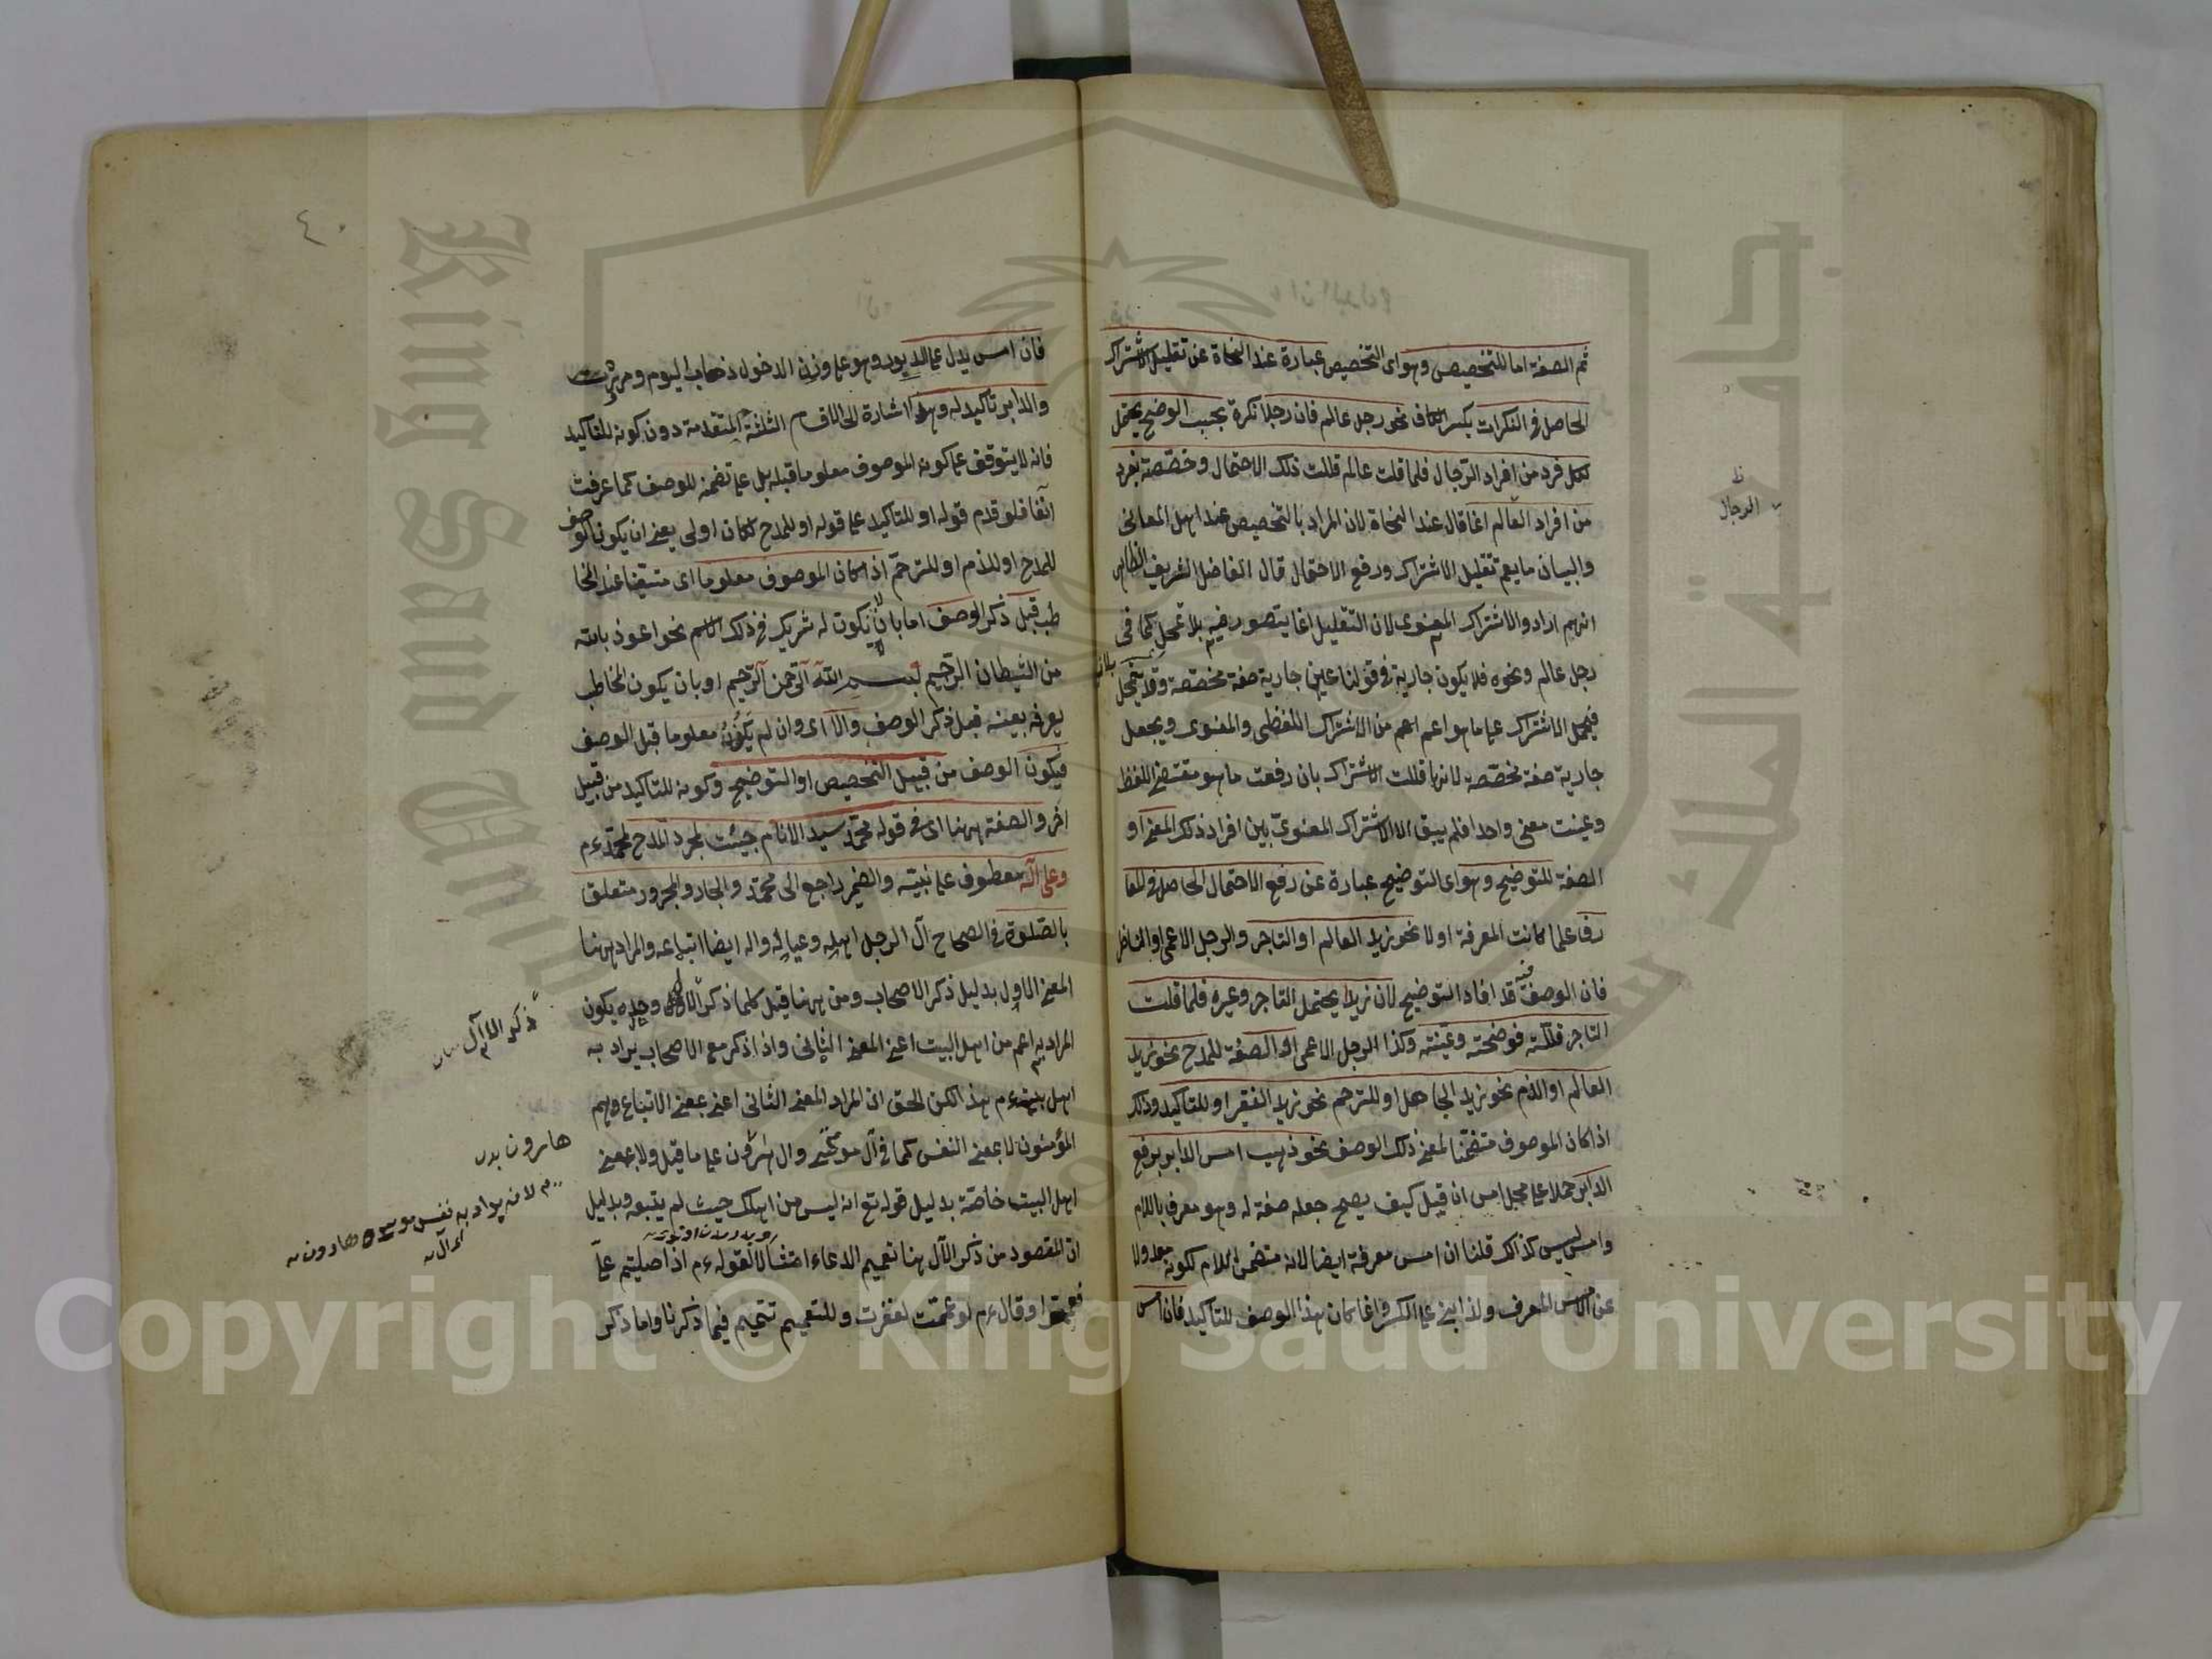 ثم الصفة اما للتخصيص وهو اى التخصيص عبارة عند النحاة عن تقليل الاشتراك
الحاصل فى النكرات بكسر الكاف نحو رجل عالم فان رجلا نكرة بحسب الوضع يحتمل
لكل فرد من افراد الرجال فلما قلت عالم قللت ذلك الاحتمال وخصصته بفرد
من افراد العالم انما قال عند النحاة لان المراد بالتخصيص عند اهل المعانى
والبيان ما يعم تقليل الاشتراك ورفع الاحتمال قال الفاضل الشريف الظاهر
انهم ارادوا الاشتراك المعنوى لان التقليل انما يتصور فيه بلا تمحل كما فى
رجل عالم ونحوه فلا يكون جارية فى قولنا عين جارية صفة مخصصة وقد يتمحل
فيحمل الاشتراك على ما هو اعم من الاشتراك اللفظى والمعنوى ويجعل
جارية صفة مخصصة لانها قللت الاشتراك بان رفعت ما هو مقتضى اللفظ
وعينت معنى واحدا فلم يبق الا الاشتراك المعنوى بين افراد ذلك المعنى او
الصفة للتوضيح وهو اى التوضيح عبارة عن رفع الاحتمال الحاصل فى المعا
رف علما كانت المعرفة او لا نحو زيد العالم او التاجر والرجل الاعمى او الفاضل
فان الوصف فيه قد افاد التوضيح لان زيدا يحتمل التاجر وغيره فلما قلت
التاجر قللته فوضحته وعينته وكذا الرجل الاعمى او الصفة للمدح نحو زيد
العالم او الذم نحو زيد الجاهل او للترحم نحو زيد الفقير او للتاكيد وذلك
اذا كان الموصوف متضمنا لمعنى ذلك الوصف نحو ذهب امس الدابر برفع
الدابر حملا على محل امس ان قيل كيف يصح جعله صفة له وهو معرف باللام
وامس ليس كذلك قلنا ان امس معرفة ايضا لانه متضمن اللام لكونه معدولا
عن الامس المعرف ولذا بنى على الكسر وانما كان هذا الوصف للتاكيد فان امس
الرجال
٤٠
فان امس يدل على الدبور وهو على وزن الدخول ذهاب اليوم ومر
والدابر تاكيد له وهذا اشارة الى الاقسام الثلثة المتقدمة دون كونه للتاكيد
فانه لا يتوقف على كون الموصوف معلوما قبله بل على تضمنه للوصف كما عرفت
آنفا فلو قدم قوله او للتاكيد على قوله او للمدح لكان اولى يعنى ان يكون الوصف
للمدح او للذم او للترحم اذا كان الموصوف معلوما اى متيقنا عند المخا
طب قبل ذكر الوصف اما بان لا يكون له شريك فى ذلك الاسم نحو اعوذ بالله
من الشيطان الرجيم بسم الله الرحمن الرحيم او بان يكون المخاطب
يعرفه بعينه قبل ذكر الوصف والا اى وان لم يكون معلوما قبل الوصف
فيكون الوصف من قبيل التخصيص او التوضيح وكونه للتاكيد من قبيل
آخر والصفة ههنا اى فى قوله محمد سيد الانام جيئت لمجرد المدح لمحمد ءم
وعلى آله معطوف على نبيه والضمير راجع الى محمد والجار والمجرور متعلق
بالصلوة فى الصحاح آل الرجل اهله وعياله وآله ايضا اتباعه والمراد ههنا
المعنى الاول بدليل ذكر الاصحاب ومن ههنا قيل كلما ذكر الآل وحده يكون
المراد به اعم من اهل البيت اعنى المعنى الثانى واذا ذكر مع الاصحاب يراد به
اهل بيته ءم هذا لكن الحق ان المراد المعنى الثانى اعنى بمعنى الاتباع وهم
المؤمنون لا بمعنى النفس كما فى آل موسى وآل هرون على ما قيل ولا بمعنى
اهل البيت خاصة بدليل قوله تع انه ليس من اهلك حيث لم يتبعه وبدليل
ان المقصود من ذكر الآل هنا تعميم الدعاء امتثالا لقوله ءم اذا صليتم علىّ
فعمموا وقال ءم لو عممت لغفرت وللتعميم تتميم فيما ذكرنا واما ذكر
ذكر الآل
هارون
لانه يراد به نفس موسى وهارون
Copyright © King Saud University
King Saud University
جامعة الملك سعود
1957